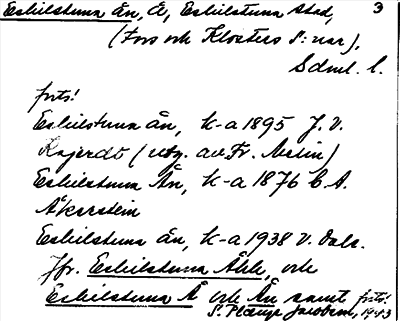 Eskilstuna ån, Å, Eskilstuna stad, 3
(Fors och Klosters s:nar),
Sdml. l.
forts!
Eskilstuna ån, k-a 1895 J. V.
(utg. av Fr. Melin)
Eskilstuna Ån, k-a 1876 C. A.
Åkerstein
Eskilstuna ån, k-a 1938 V. Dals.
Jfr. Eskilstuna Åhl, och
Eskilstuna Å och Ån samt forts!
S. Plange Jacobson, 1943